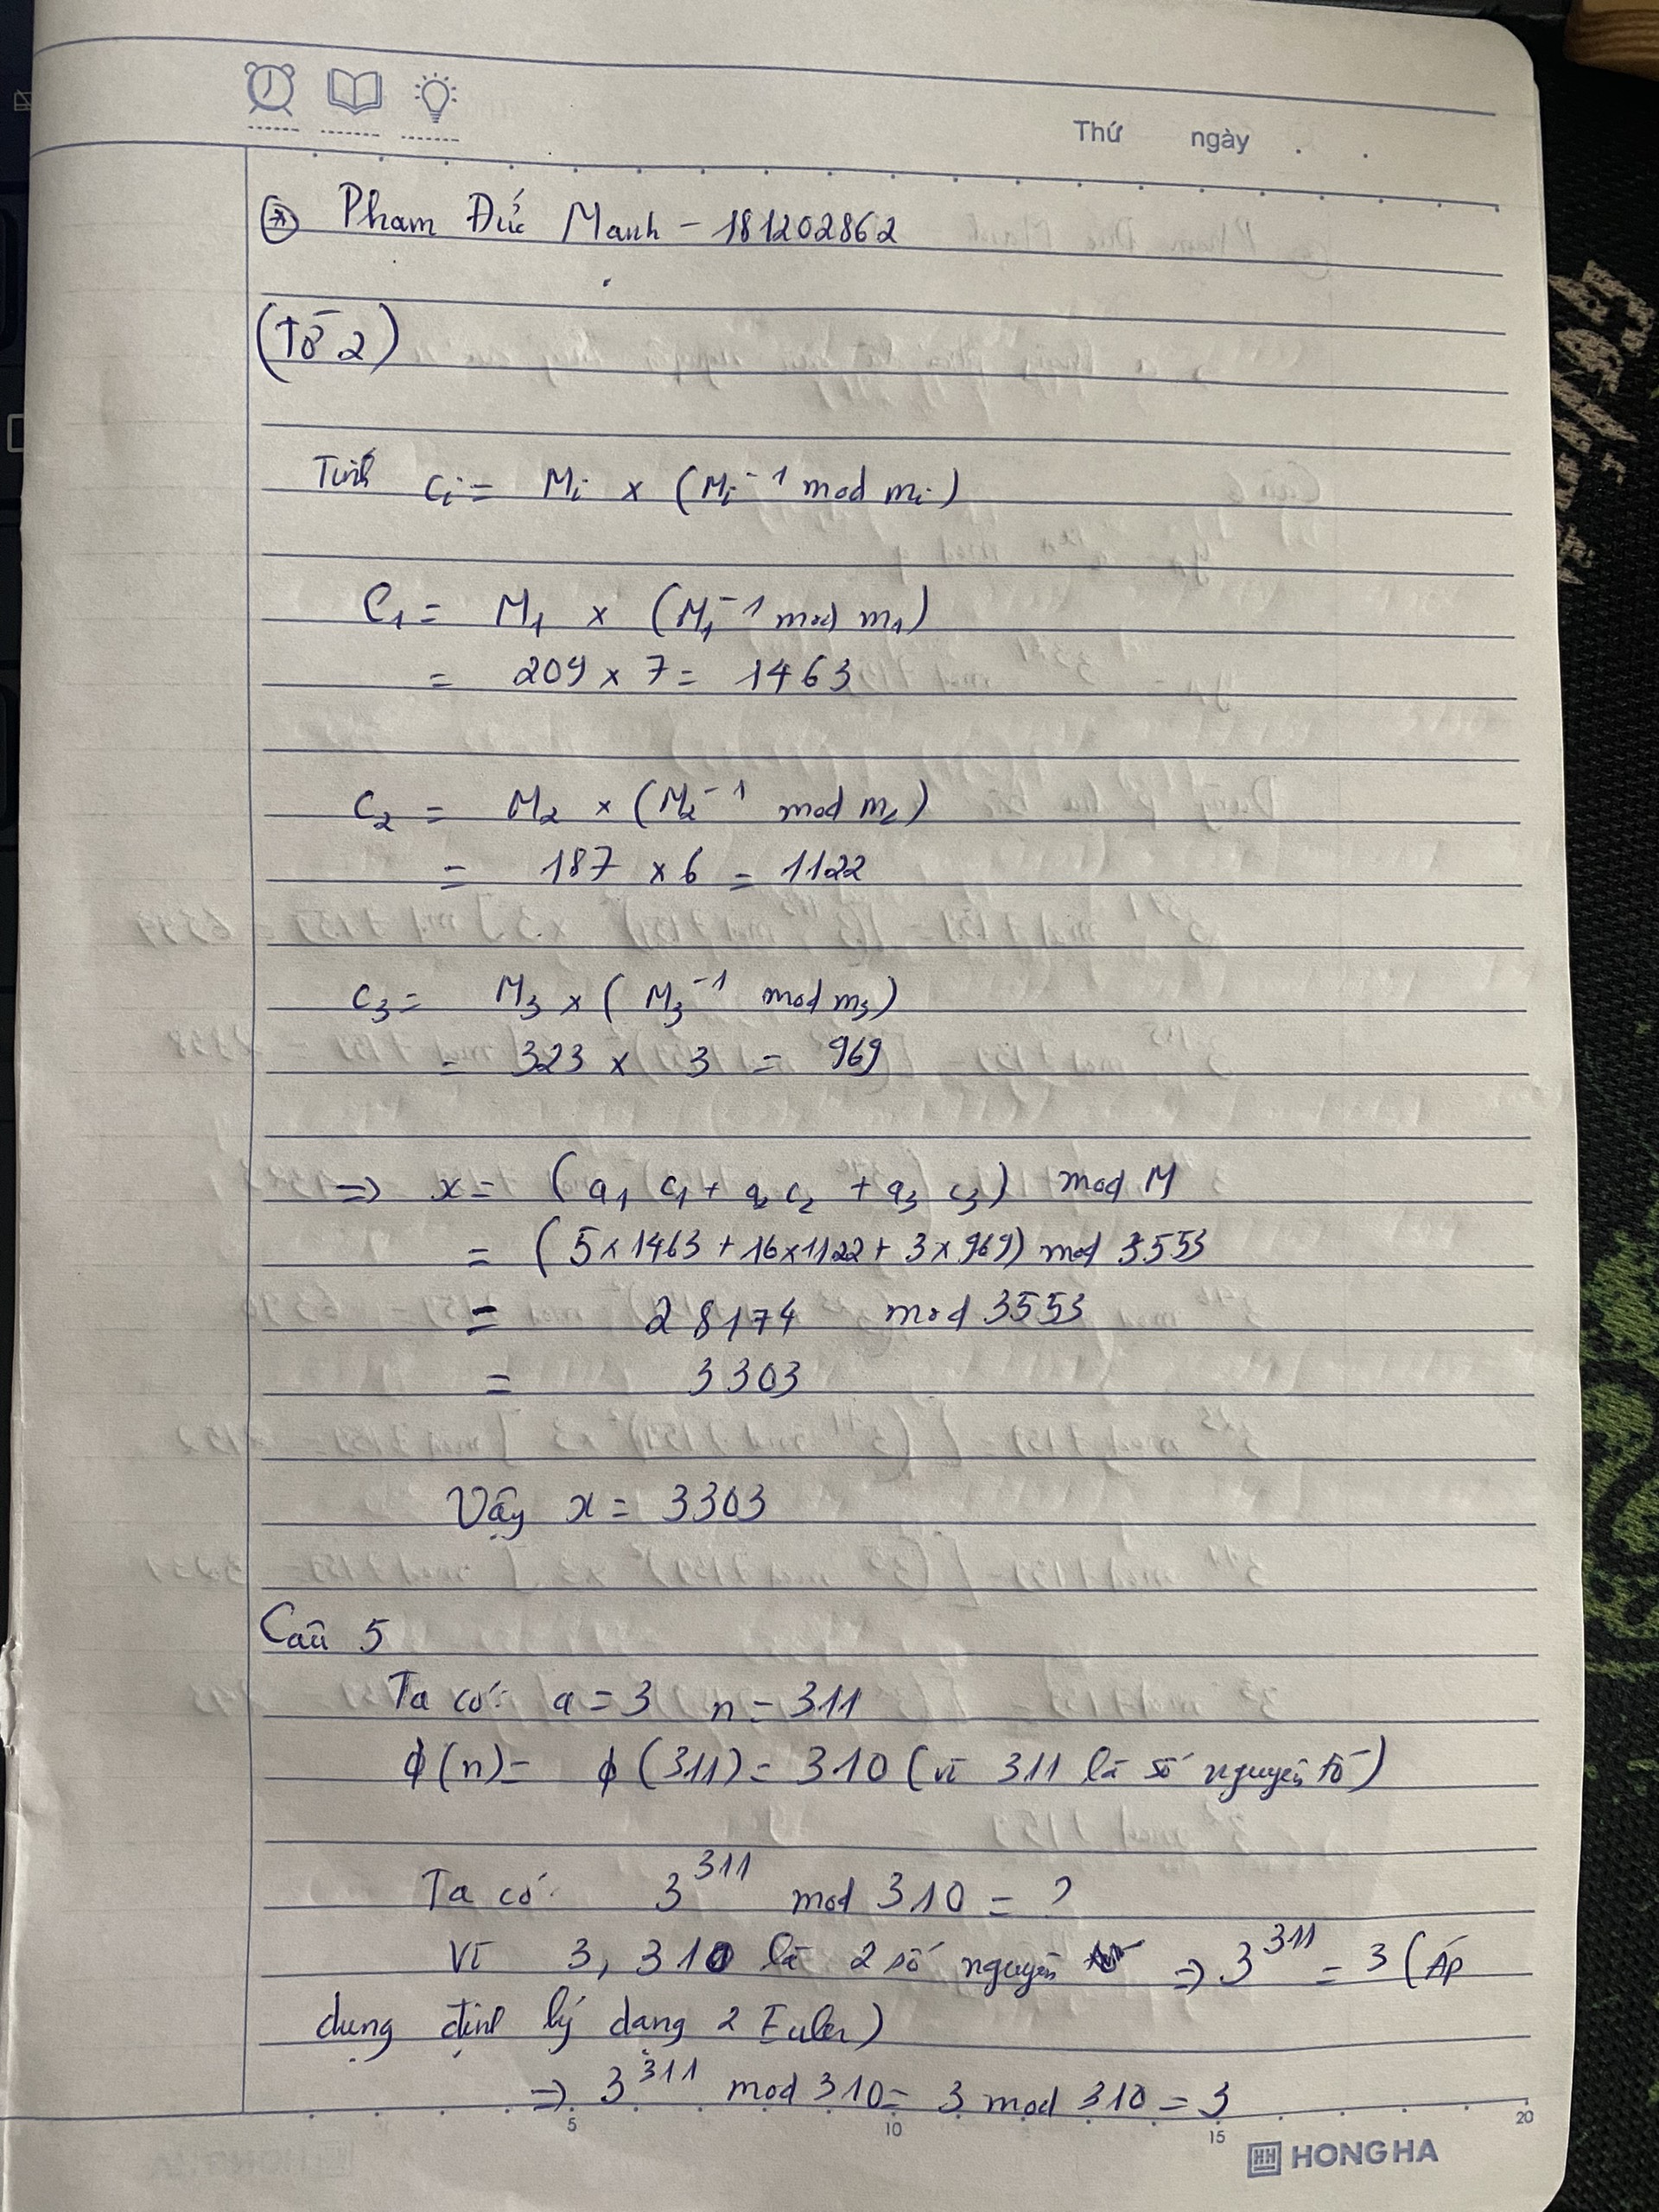 Thứ ngày . .
* Phạm Đức Mạnh - 181202862
(Tờ 2)
Tính cᵢ = Mᵢ x (Mᵢ⁻¹ mod mᵢ)
C₁ = M₁ x (M₁⁻¹ mod m₁)
= 209 x 7 = 1463
C₂ = M₂ x (M₂⁻¹ mod m₂)
= 187 x 6 = 1122
C₃ = M₃ x (M₃⁻¹ mod m₃)
= 323 x 3 = 969
=> x = (a₁ c₁ + a₂ c₂ + a₃ c₃) mod M
= (5 x 1463 + 16 x 1122 + 3 x 969) mod 3553
= 28174 mod 3553
= 3303
Vậy x = 3303
Câu 5
Ta có: a = 3 n = 311
ϕ(n) = ϕ(311) = 310 (vì 311 là số nguyên tố)
Ta có: 3³¹¹ mod 310 = ?
Vì 3, 310 là 2 số nguyên => 3³¹¹ = 3 (Áp
dụng định lý dạng 2 Euler)
=> 3³¹¹ mod 310 = 3 mod 310 = 3
5 10 15 20
HONG HA